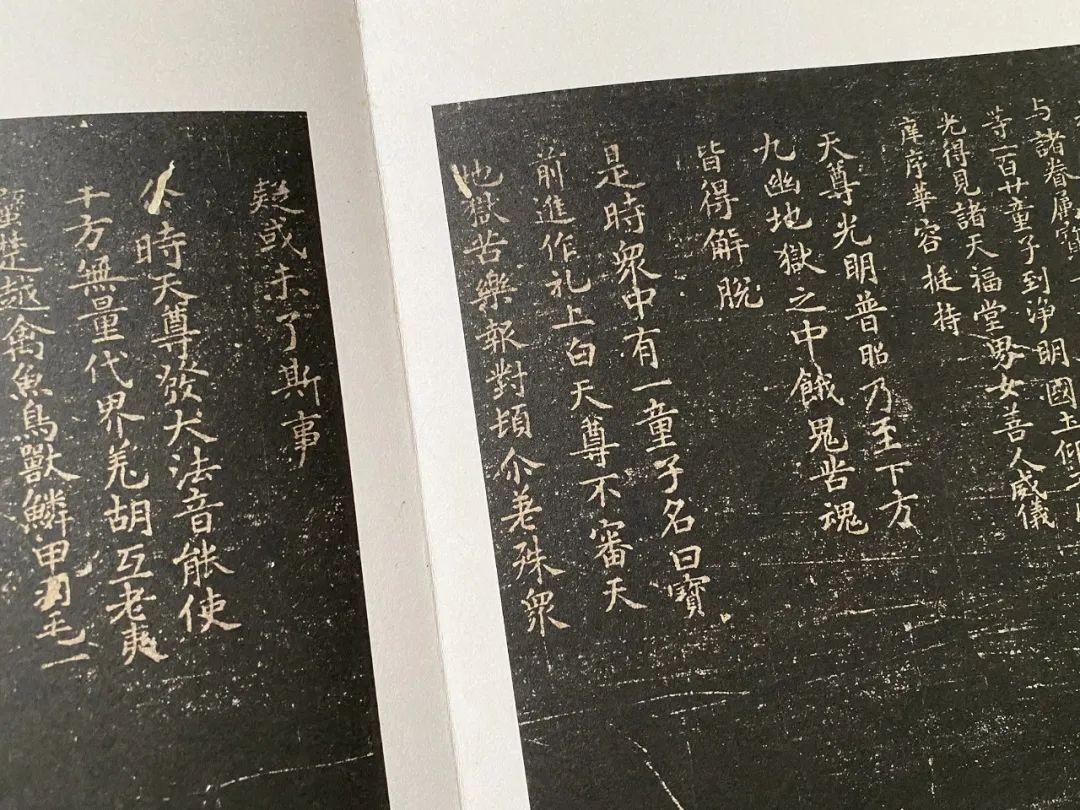 与諸眷屬寶
等一百廿童子到净明國土仰
光得見諸天福堂男女善人威儀
庠序華容挺持
天尊光明普昭乃至下方
九幽地獄之中餓鬼苦魂
皆得解脫
是時眾中有一童子名曰寶
前進作礼上白天尊不審天
地獄苦樂報對頓尒差殊眾
疑或未了斯事
尒時天尊發大法音能使
十方無量代界羌胡互老夷
蠻楚越禽魚鳥獸鱗甲羽毛一